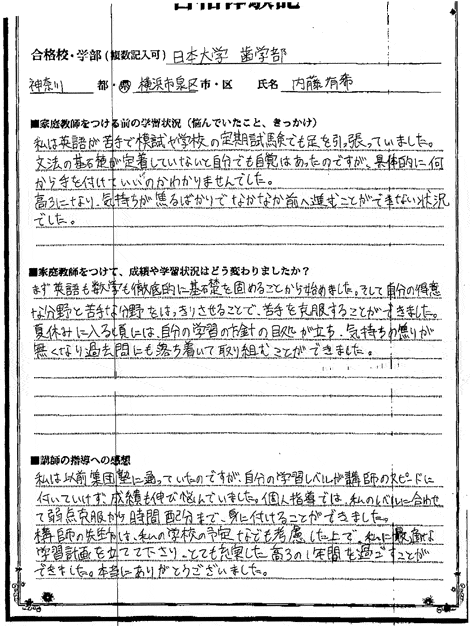 合格体験記
合格校・学部（複数記入可） 日本大学 歯学部
神奈川 都・県 横浜市泉区 市・区 氏名 内藤有希
■家庭教師をつける前の学習状況（悩んでいたこと、きっかけ）
私は英語が苦手で模試や学校の定期試験でも足を引っ張っていました。
文法の基礎が定着していないと自分でも自覚はあったのですが、具体的に何
から手を付けていいのかわかりませんでした。
高3になり、気持ちが焦るばかりでなかなか前へ進むことができない状況
でした。
■家庭教師をつけて、成績や学習状況はどう変わりましたか？
まず英語も数学も徹底的に基礎を固めることから始めました。そして自分の得意
な分野と苦手な分野をはっきりさせることで、苦手を克服することができました。
夏休みに入る頃には、自分の学習の方針の目処が立ち、気持ちの焦りが
無くなり過去問にも落ち着いて取り組むことができました。
■講師の指導への感想
私は以前集団塾に通っていたのですが、自分の学習レベルが講師のスピードに
付いていけず、成績も伸び悩んでいました。個人指導では、私のレベルに合わせ
て弱点克服から時間配分まで、身に付けることができました。
講師の先生方は、私の学校の予定なども考慮した上で、私に最適な
学習計画を立てて下さり、とても充実した高3の1年間を過ごすことが
できました。本当にありがとうございました。